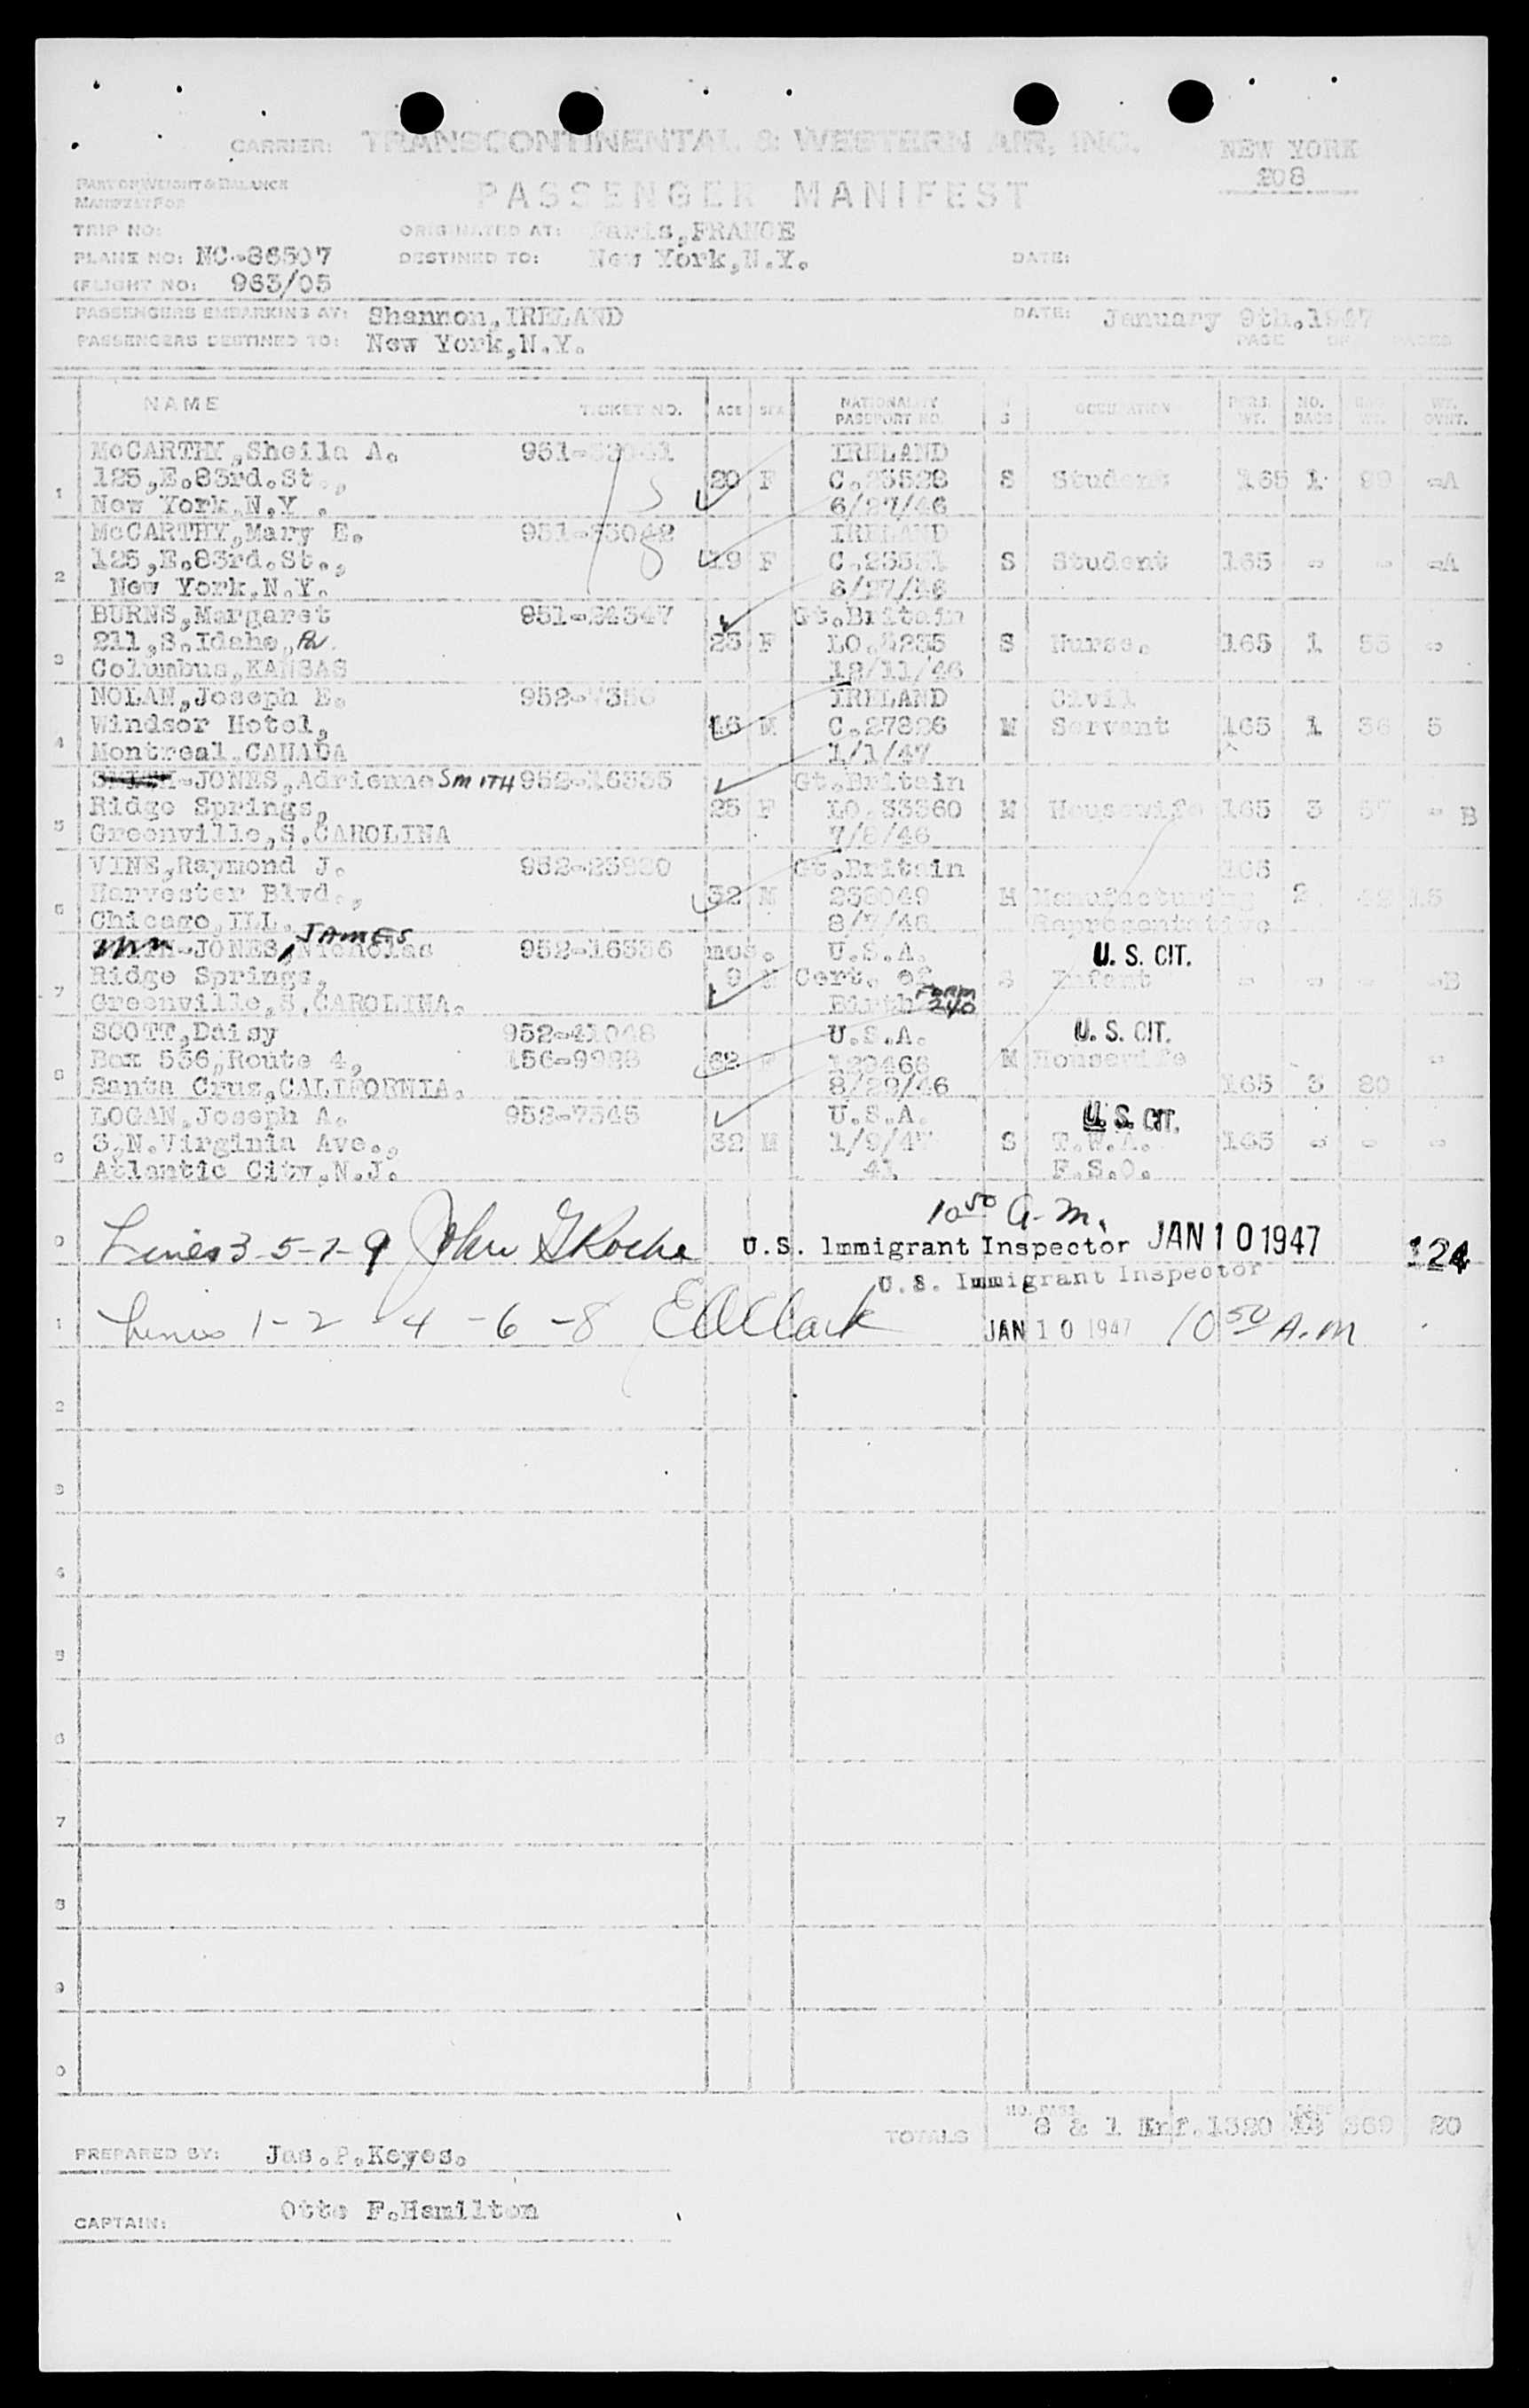 CARRIER: TRANSCONTINENTAL & WESTERN AIR, INC.
NEW YORK
PART OF WEIGHT & BALANCE
MANIFEST FOR
PASSENGER MANIFEST
208
TRIP NO: ORIGINATED AT: Paris,FRANCE
PLANE NO: NC-86507 DESTINED TO: New York,N.Y. DATE:
(FLIGHT NO: 963/05
PASSENGERS EMBARKING AT: Shannon,IRELAND DATE: January 9th.1947
PASSENGERS DESTINED TO: New York,N.Y. PAGE OF PAGES
NAME TICKET NO. AGE SEX NATIONALITY PASSPORT NO. M S OCCUPATION PERS. WT. NO. BAGS BAG. WT. WT. OVWT.
McCARTHY,Sheila A. 951- IRELAND
125,E.83rd.St., 20 F C.25528 S Student 165 1 99 -A
1 New York,N.Y. 6/27/46
McCARTHY,Mary E. 951-33042 IRELAND
125,E.83rd.St., 19 F C.25531 S Student 165 - - -A
2 New York,N.Y. 6/27/46
BURNS,Margaret 951-24347 Gt.Britain
211,S.Idaho, 23 F LO.4235 S Nurse. 165 1 55 -
3 Columbus,KANSAS 12/11/46
NOLAN,Joseph E. 952-7350 IRELAND Civil
Windsor Hotel, 46 M C.27826 M Servant 165 1 36 5
4 Montreal.CANADA 1/1/47
SMITH-JONES,Adrienne SMITH 952-16535 Gt.Britain
Ridge Springs, 25 F LO.33360 M Housewife 165 3 57 - B
5 Greenville,S.CAROLINA 7/8/46
VINE,Raymond J. 952-25820 Gt.Britain 165
Harvester Blvd., 32 M 258049 M Manufacturing 2 42 15
6 Chicago,ILL. 8/7/46. Representative
JAMES
SMITH-JONES,Nicholas 952-16536 mos. U.S.A. U. S. CIT.
Ridge Springs, 9 M Cert. of S Infant - - - -B
7 Greenville,S.CAROLINA. Birth FORM 240
SCOTT,Daisy 952-41048 U.S.A. U. S. CIT.
Box 556,Route 4, 156-9928 62 F 129468 M Housewife -
8 Santa Cruz,CALIFORNIA. 8/29/46 165 3 80
LOGAN,Joseph A. 952-7345 U.S.A. U. S. CIT.
3,N.Virginia Ave., 32 M 1/9/47 S T.W.A. 165 - - -
9 Atlantic City,N.J. 41 F.S.O.
10 50 A.M.
0 Lines 3-5-7-9 John G Roche U.S. Immigrant Inspector JAN 10 1947 124
U. S. Immigrant Inspector
1 Lines 1-2-4-6-8 E A Clark JAN 10 1947 10 50 A.M
2
3
4
5
6
7
8
9
0
TOTALS NO. PASS. 8 & 1 Inf. 1320 12 369 20
PREPARED BY: Jas.P.Keyes.
CAPTAIN: Otto F.Hamilton